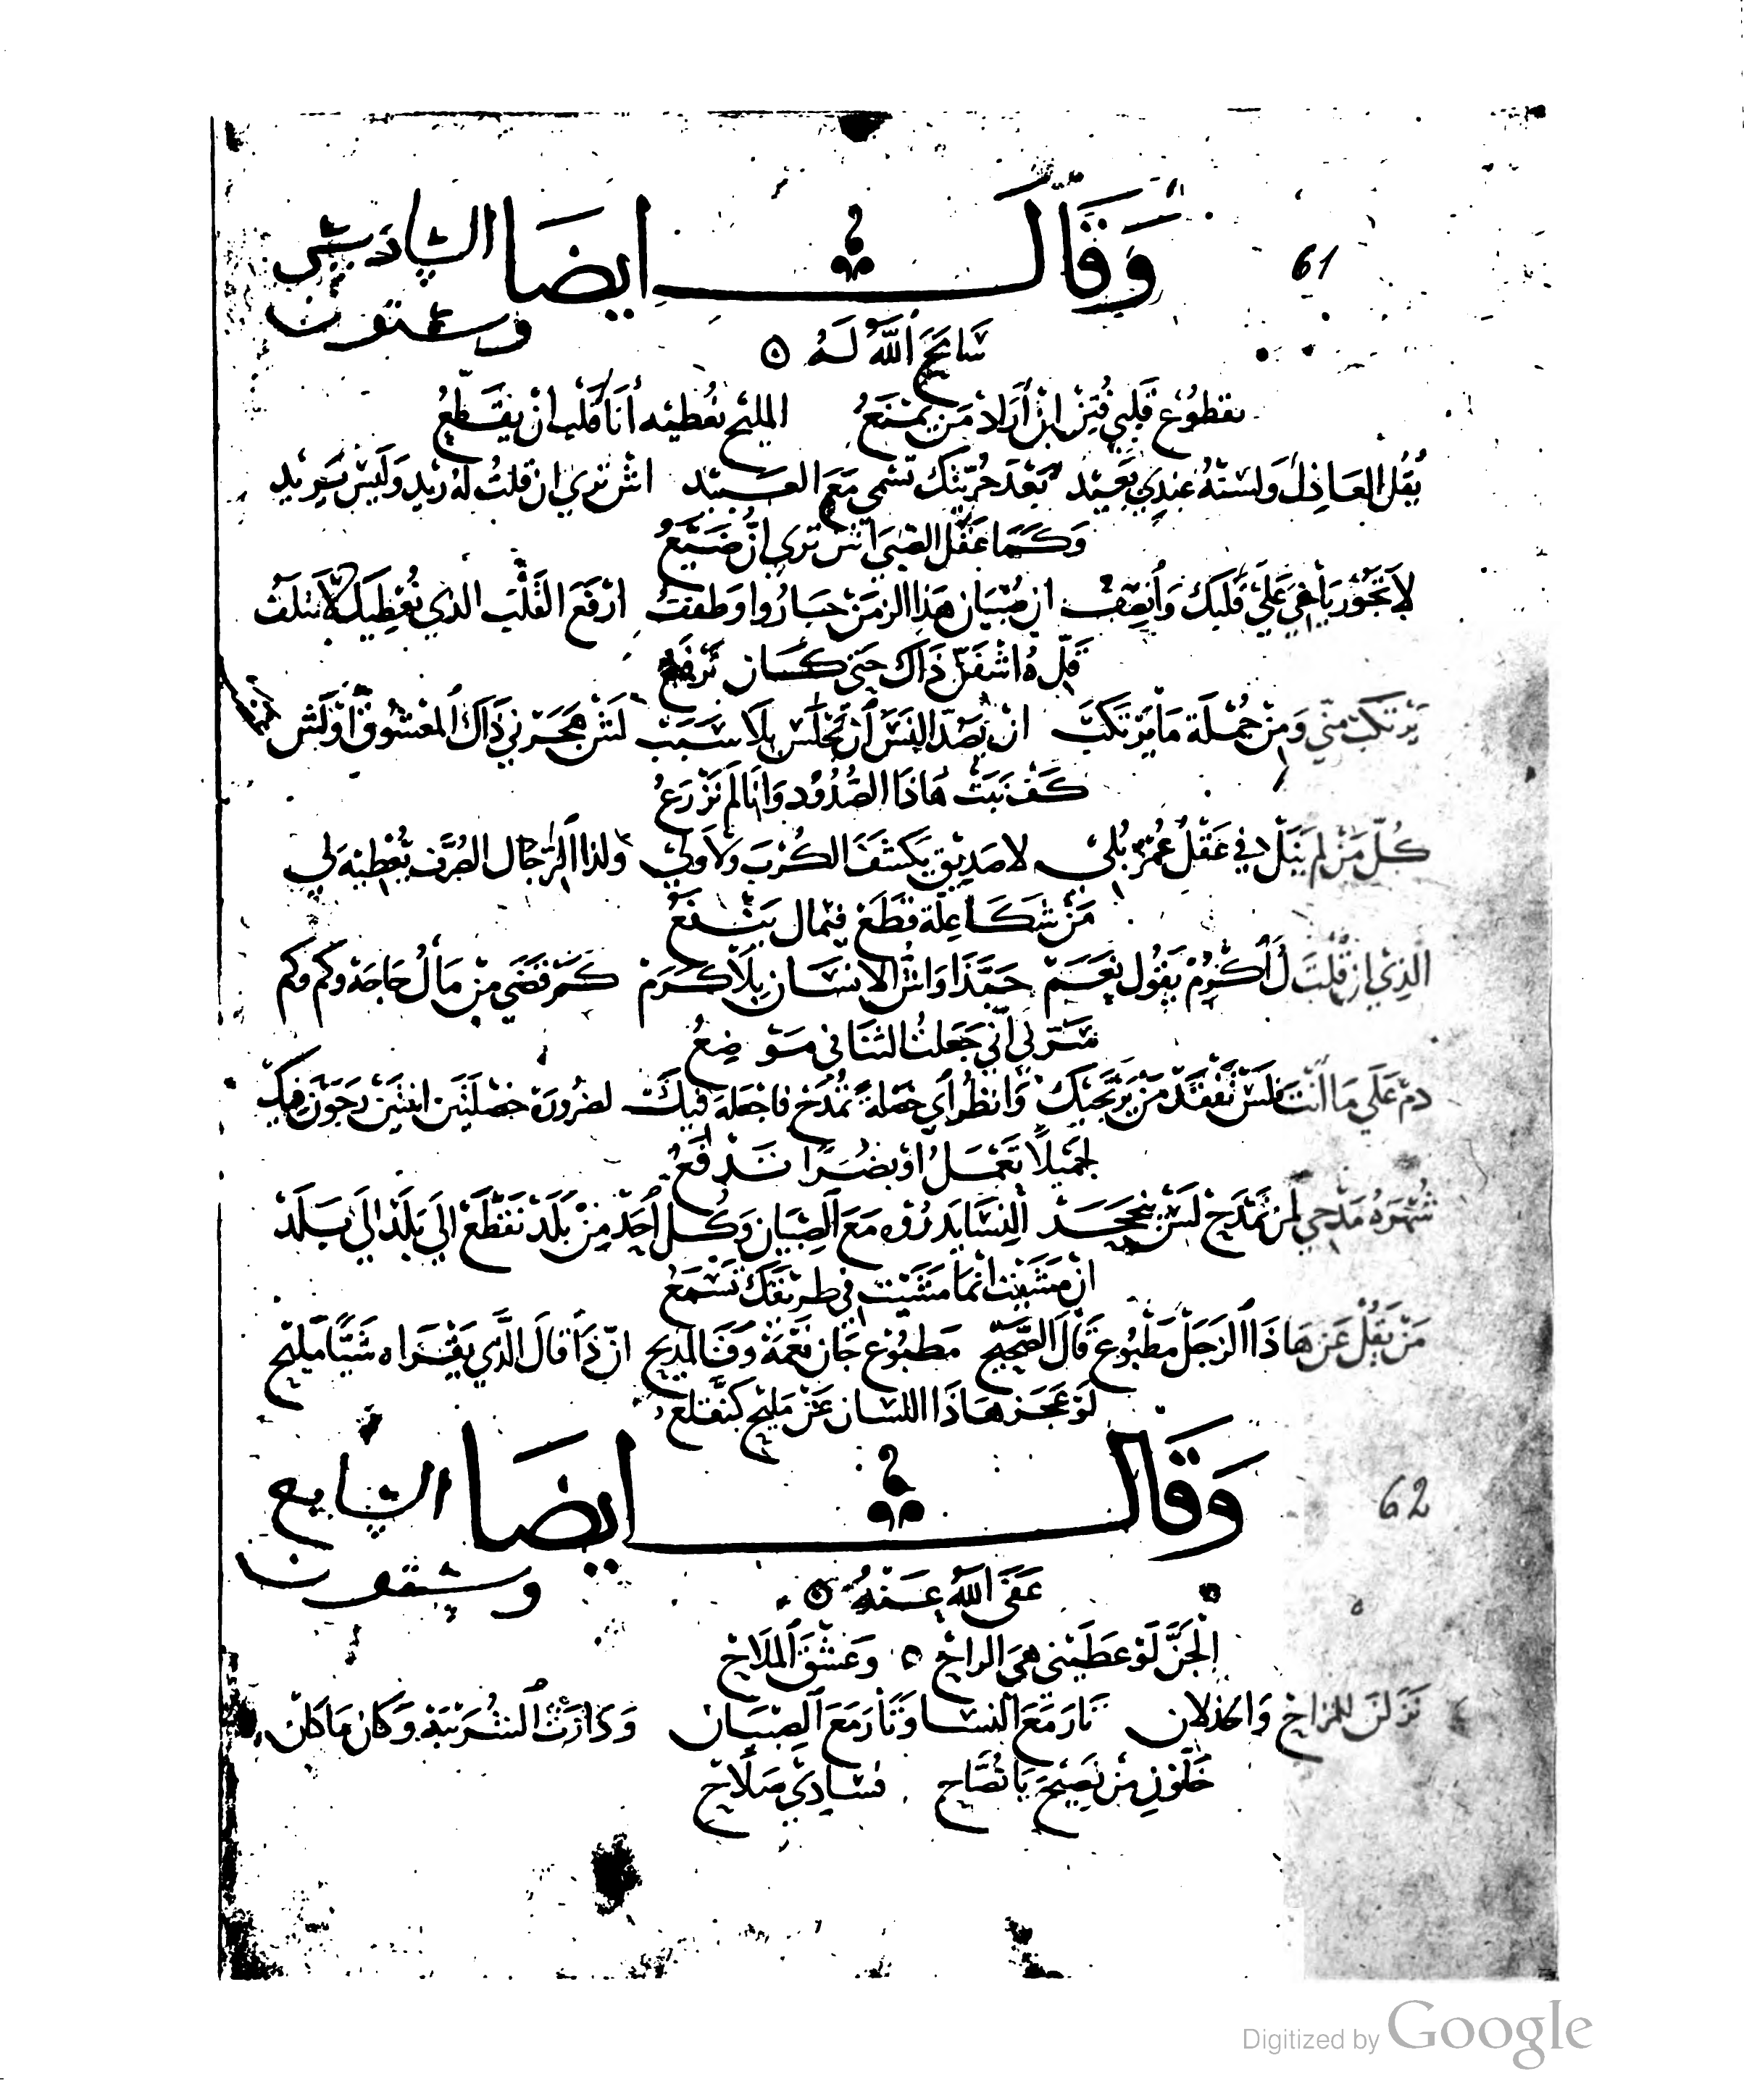 61
وَقَالَ ايضَا السَّادس
وستون
سَامَحَ اللَّهُ لَهُ
نقطُوع قلبي فَتِز ابْن أَرَاد مَن يَمْنَعُ المليح نُعْطيْه أنَا قَلْب انْ يقَطعُ
يُقُل العَاذِلْ وَلسَتهُ عِندِي بَعِيْد بَعْدَ حُرّيتك تسْمى مَعَ العَبيْد اشْ نرَي ان قُلتُ لهُ زيد وَلَيْسْ يَرِيد
وَكَما عَقْل الصبي اشْ ترى انُّ ضَيَّعُ
لاَ تَجُوْر يَا أَخِي عَلَي قَلبَك وَأنصِف ان صُبْيَان هَذا الزمَنْ جَارُوا وَطفَفتْ ارْفَع القَلْب الذي نُعْطِيَك لاَ يتلَفْ
قلّ ه اشْ ذَاك حَتى كَان نرْفع
يَرْتَكبْ منّي وَمِنْ جُمْلَة مَا يَرْتَكَبْ انْ يَصّد الِنسَ أنْ تخْلَس بِلَا سَبَبْ لَسْ هَجَرْني ذَاك المَعْشُوق اوْلَسْ
كَف نَبَتْ هَاذَا الصُّدُوْد وَانَا لَمْ نَزْرَعُ
كُلّ مَنْ لم يَنَل في عَقْلُ عُمْرُ بُلي لاَ صَدِيْق يَكشَفَ الكُرَبَ وَلاَ وَلي وَلذا الرّجَال الصُرَّف يُعْطِيْهَ لي
مَنْ شَكَا عِلّة قطَعْ فيْمَال يَنْفَعُ
الَّذِي انْ قُلتَ لُ أكْرُمْ يَقُول نَعَمْ حَبَّذَا وَاشْ الانسَان بِلَا كَرَمْ كَمْ قَضَي مِنْ مَالُ حَاجَة وَكَم وَكم
سَرّ لي انّي جَعَلتُ الثنَا في مَوْضِعُ
دمْ عَلَي مَا انْتَ فلَسْ نَفْقَدْ مَنْ يَرْتَجيْك وَانظُر أي خَصْلة تُمْدَحْ فاجْعَلهَ فيْكَ لضرُورَة خصْلَتَين اثنَيَن رَجَوْنَ فيْك
لجَميْلاً تَعْمَلُ اوْ بِضُرّا تَدْفَعُ
شُهْرَهُ مَدْحي لمن نَمْدَحْ لسْ يَنجحَدْ النِّسَا يَدرُوْه مَعَ الصِّبْيَان وَكُل أحَدْ مِنْ بَلَدْ نَقْطَعْ الَي بَلَدْ الَي بَلَدْ
انْ مشَيْت انْمَا مَشَيْت في طَريْقَك نَسْمَعُ
مَنْ يَقُلْ عَن هَاذَا الزَجَلْ مَطْبُوع قَالَ الصَّحِيْح مَطبُوْع جَان نَعْمَة وَفَنَا لمدِيح انّ ذَا قَالَ الَّذي يَقْرَاه شَيًّا مَليْح
لَوْ عَجَز هَاذَا اللسَان عَنْ مَليْح كنقْلعُ
62
وَقَالَ ايضَا السَّابع
وستون
عَفَى اللهُ عَنْهُ
الْجَنَّ لَوْ عَطَيْتني هيَ الراحْ وَعَشْقَ المَلَاحْ
نَزَلنَ للمُزاحْ وَالخذلان نَار مَعَ النسَا وَنَار مَعَ الصِبْيَان وَدَارَتْ الشُرَيْبَة وَكَان مَا كَانْ
خَلّوْنِ مِنْ نَصِيْحَ يَا نُصَّاح فسَادِي صَلاَحْ
Digitized by Google